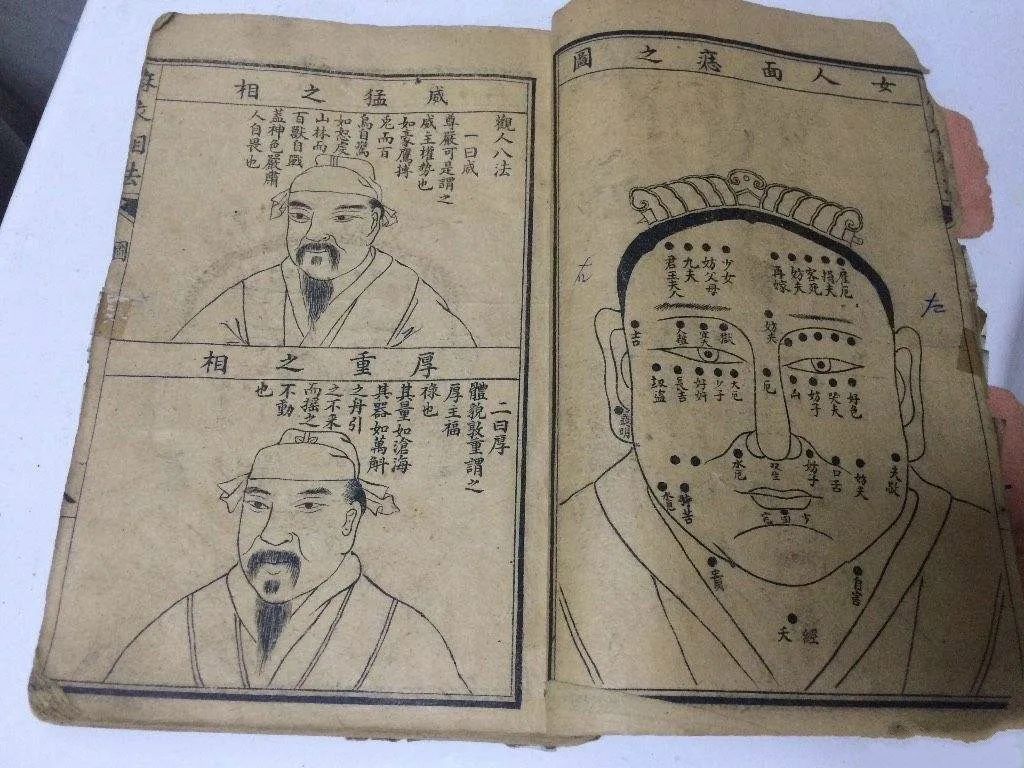 女人面痣之圖
產厄
損夫
客死
妨夫
再嫁
少女
妨父母
九夫
君王夫人
妨夫
吉
厄
好色
哭夫
妨子
水厄
長吉
好奸
少子
大厄
口舌
妨子
妨夫
雙生
自害
左
右
威猛之相
觀人八法
一曰威
尊嚴可畏謂之
威主權勢也
如豪鷹搏
兎而百
鳥自驚
如怒虎
山林而
百獸自戰
蓋神色嚴肅
人自畏也
厚重之相
二曰厚
體貌敦重謂之
厚主福
祿也
其量如滄海
其器如萬斛
之舟引
之不來
而搖之
不動
也
麻衣相法
圖